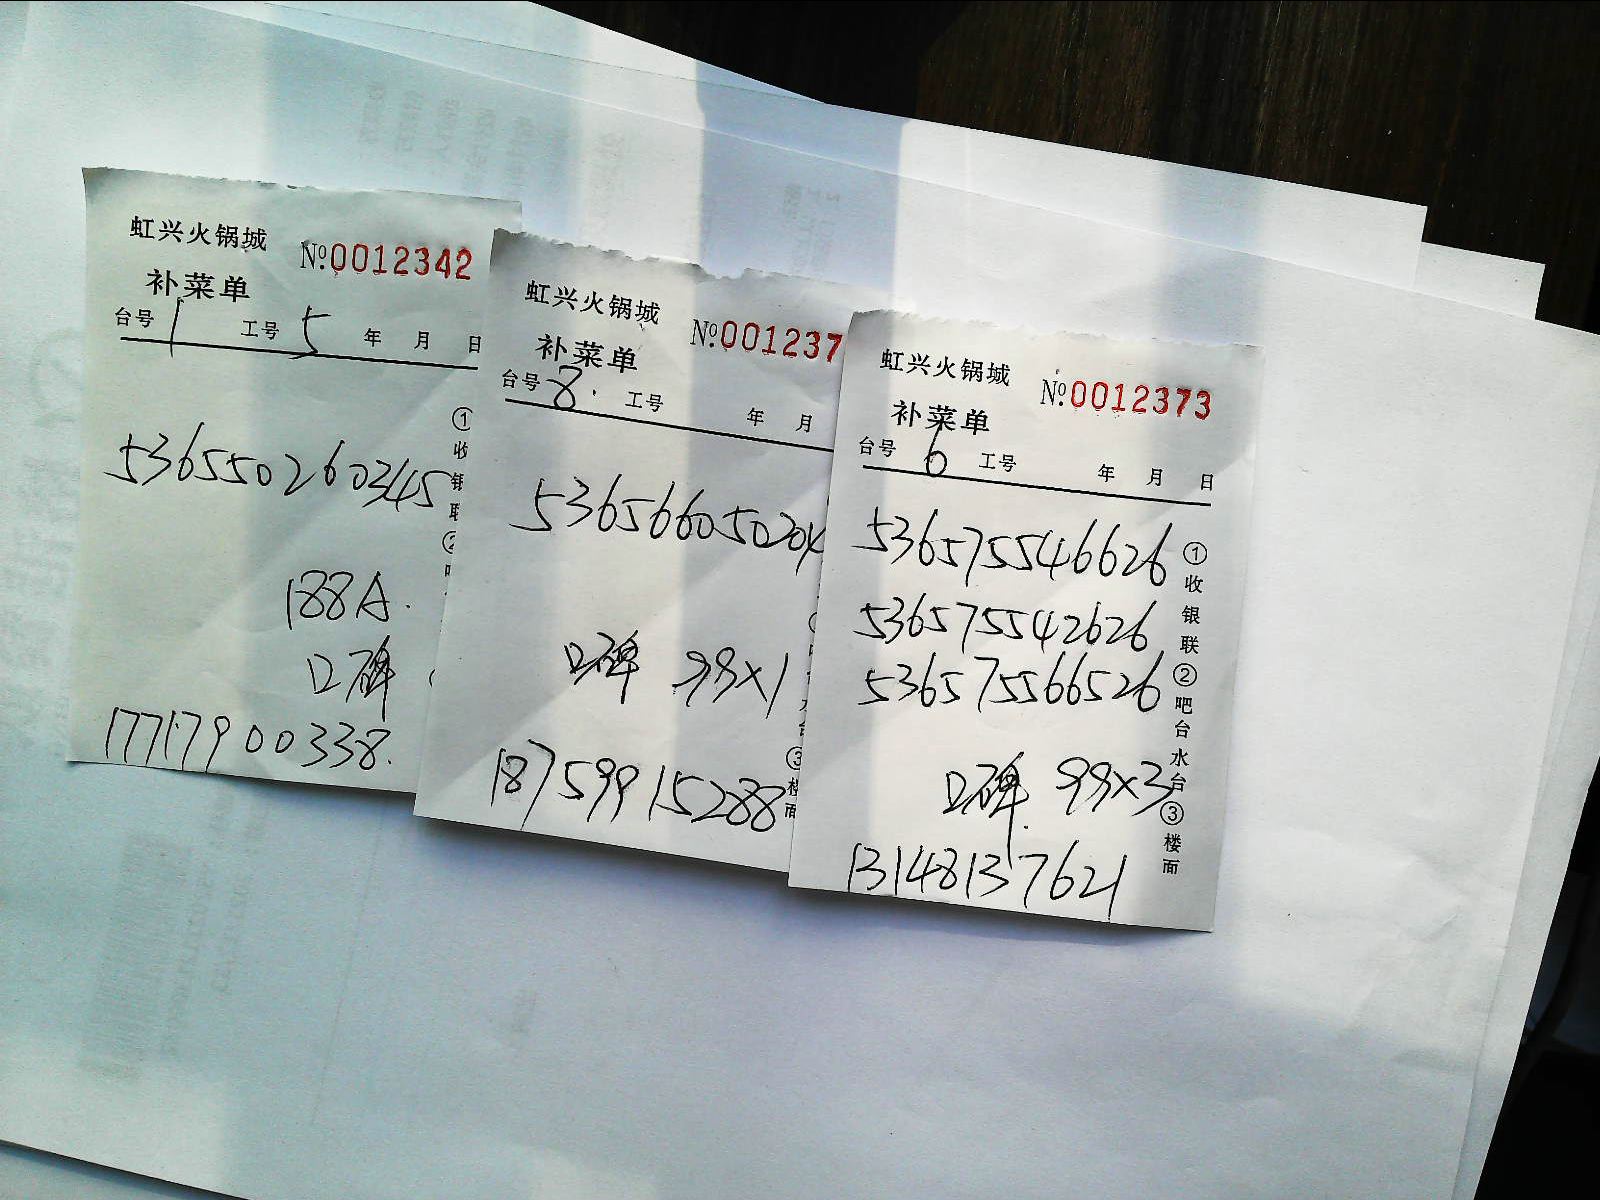 虹兴火锅城 №0012342
补菜单
台号 1 工号 5 年 月 日
536550260345
188A.
口碑
17717900338.
①收银联②
虹兴火锅城 №001237
补菜单
台号 8. 工号 年 月
536566050204
口碑 99×1
18759915288
③楼面
虹兴火锅城 №0012373
补菜单
台号 6 工号 年 月 日
536575546626
536575542626
536575566526
口碑 99×3
13148137621
①收银联②吧台水台③楼面